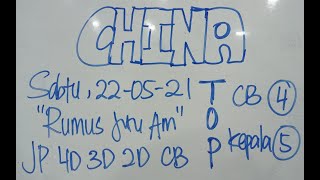 CHINA
Sabtu, 22-05-21
"Rumus Jutu Am"
JP 4D 3D 2D CB
TOP
CB 4
Kepala 5